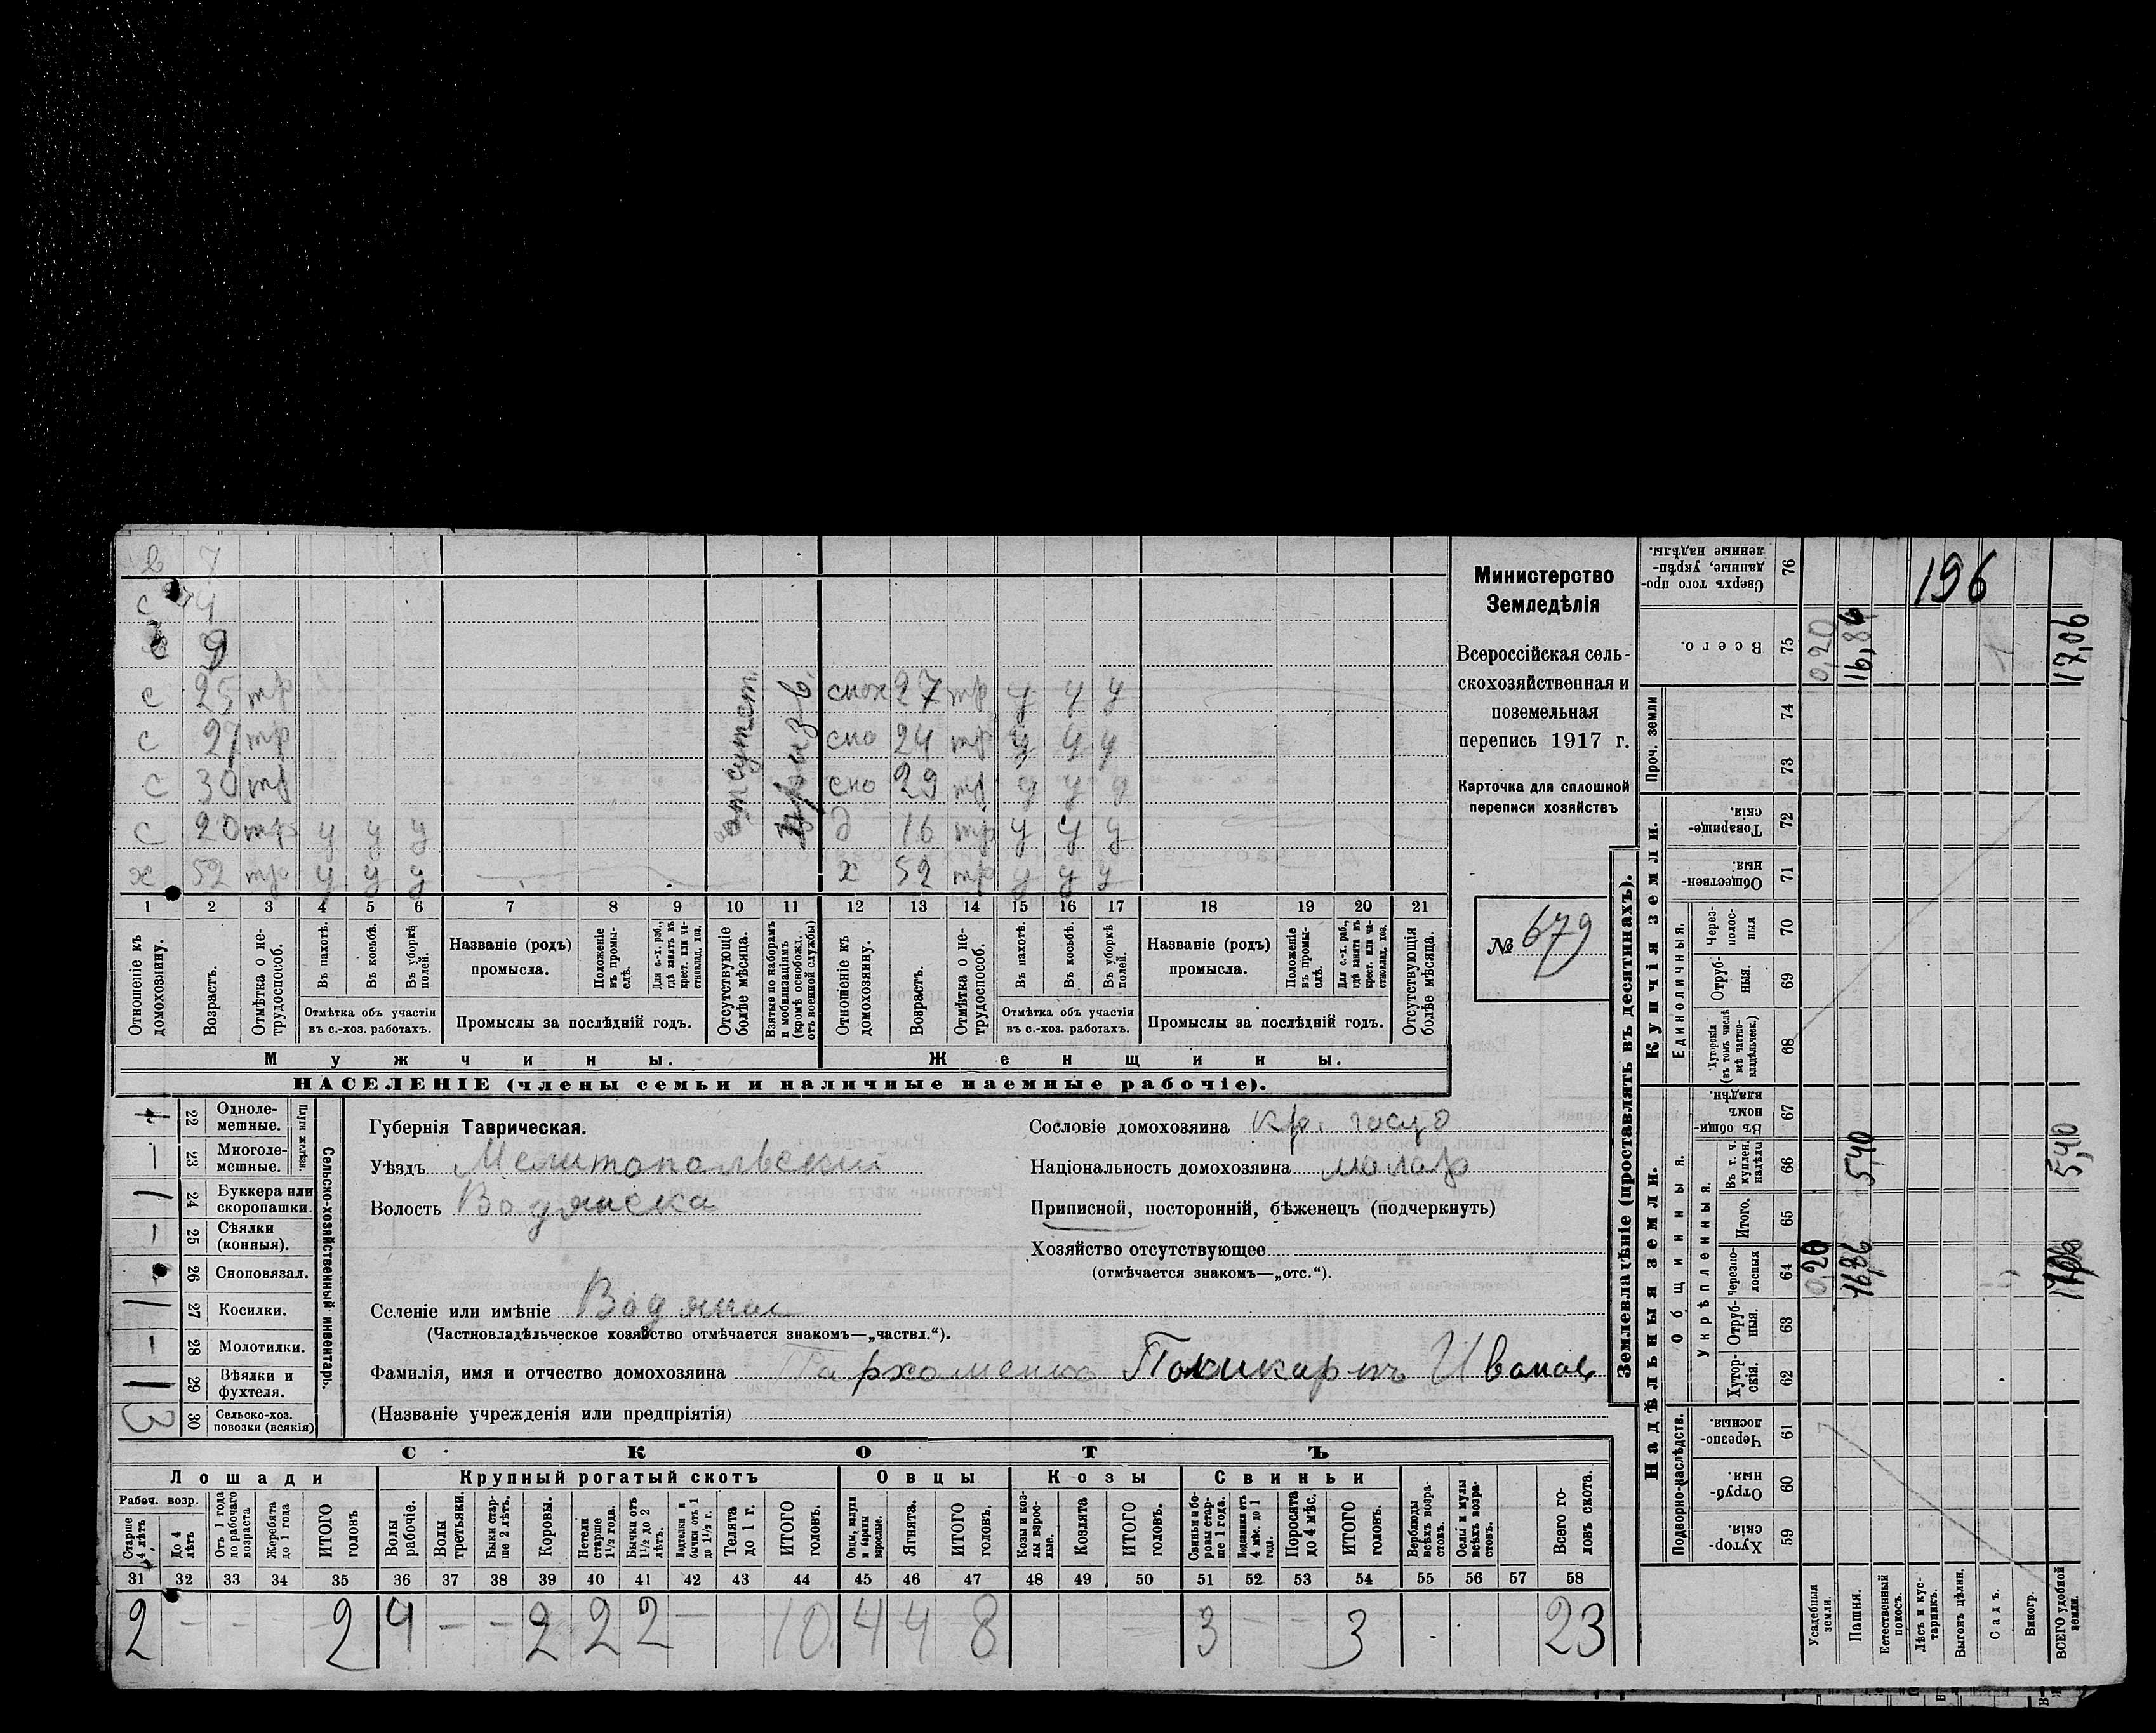 в 7
с 4
с 9
с 25 тр снох 27 тр у у у
с 27 тр сно 24 тр у у у
с 30 тр сно 29 тр у у у
с 20 тр у у у д 16 тр у у у
х 52 тр у у у х 52 тр у у у
отсутст.
призв.
1 2 3 4 5 6 7 8 9 10 11 12 13 14 15 16 17 18 19 20 21
Отношеніе къ домохозяину.
Возрастъ.
Отмѣтка о не-
трудоспособ.
Въ пахотѣ.
Въ косьбѣ.
Въ уборкѣ полей.
Отмѣтка объ участіи
въ с.-хоз. работахъ.
Названіе (родъ)
промысла.
Положеніе въ промы-
слѣ.
Для с.-х. раб.,
гдѣ занятъ въ
крест. или ча-
стновлад. хоз.
Промыслы за послѣдній годъ.
Отсутствующіе
болѣе мѣсяца.
Взятые по наборамъ
и мобилизаціямъ
(кромѣ освобожд.
отъ военной службы)
Отношеніе къ
домохозяину.
Возрастъ.
Отмѣтка о не-
трудоспособ.
Въ пахотѣ.
Въ косьбѣ.
Въ уборкѣ
полей.
Отмѣтка объ участіи
въ с.-хоз. работахъ.
Названіе (родъ)
промысла.
Положеніе
въ промы-
слѣ.
Для с.-х. раб.,
гдѣ занята въ
крест. или ча-
стновлад. хоз.
Промыслы за послѣдній годъ.
Отсутствующія
болѣе мѣсяца.
Мужчины.
Женщины.
НАСЕЛЕНІЕ (члены семьи и наличные наемные рабочіе).
Министерство
Земледѣлія
Всероссійская сель-
скохозяйственная и
поземельная
перепись 1917 г.
Карточка для сплошной
переписи хозяйствъ
№ 679
Сельско-хозяйственный инвентарь.
Плуги желѣзн.
22 Одноле-
мешные.
– 23 Многоле-
мешные.
1 24 Буккера или
скоропашки.
– 25 Сѣялки
(конныя).
26 Сноповязал.
1 27 Косилки.
– 28 Молотилки.
1 29 Вѣялки и
фухтеля.
3 30 Сельско-хоз.
повозки (всякія)
Губернія Таврическая.
Уѣздъ Мелитопольскій
Волость Водянска
Селеніе или имѣніе Водяное
(Частновладѣльческое хозяйство отмѣчается знакомъ—„частвл.“).
Фамилія, имя и отчество домохозяина Пархоменко Поликарпъ Иванов
(Названіе учрежденія или предпріятія)
Сословіе домохозяина кр. госуд
Національность домохозяина малор
Приписной, посторонній, бѣженецъ (подчеркнуть)
Хозяйство отсутствующее
(отмѣчается знакомъ—„отс.“).
СКОТЪ
Лошади
Крупный рогатый скотъ
Овцы
Козы
Свиньи
Рабоч. возр.
Старше
4 лѣтъ
До 4
лѣтъ
Отъ 1 года
до рабочаго
возраста
Жеребята
до 1 года
ИТОГО
головъ
Волы
рабочіе.
Волы
третьяки.
Быки стар-
ше 2 лѣтъ.
Коровы.
Нетели
старше
1½ года.
Бычки отъ
1½ до 2
лѣтъ.
Подтелки и
бычки отъ 1
до 1½ г.
Телята
до 1 г.
ИТОГО
головъ.
Овцы, валухи
и бараны
взрослые.
Ягнята.
ИТОГО
головъ.
Козы и коз-
лы взрос-
лые.
Козлята
ИТОГО
головъ.
Свиньи и бо-
ровы стар-
ше 1 года.
Подсвинки отъ
4 мѣс. до 1
года.
Поросята
до 4 мѣс.
ИТОГО
головъ.
Верблюды
всѣхъ возра-
стовъ.
Ослы и мулы
всѣхъ возра-
стовъ.
Всего го-
ловъ скота.
31 32 33 34 35 36 37 38 39 40 41 42 43 44 45 46 47 48 49 50 51 52 53 54 55 56 57 58
2 – – 2 4 – – 2 2 2 – 10 4 4 8 3 – – 3 23
Землевладѣніе (проставлять въ десятинахъ).
Надѣльныя земли.
Купчія земли.
Проч. земли
Подворно-наслѣдств.
Общинныя.
Укрѣпленныя.
Единоличныя.
Хутор-
скія. 59
Отруб-
ныя. 60
Черезпо-
лосныя. 61
Хутор-
скія. 62
Отруб-
ныя. 63
Черезпо-
лосныя 64
Итого. 65
Въ т. ч.
куплен.
надѣлы 66
Въ общи
номъ
владѣн. 67
Хуторскія
(въ томъ числѣ
всѣ частно-
владѣльческ.) 68
Отруб-
ныя. 69
Через-
полос-
ныя 70
Обществен-
ныя. 71
Товарище-
скія. 72
73
74
Всего. 75
Сверхъ того про-
данные, укрѣп-
ленные надѣлы. 76
Усадебныя
земли. 0,20 0,20
Пашня. 16,86 5,40 16,86
Естественный
покосъ.
Лѣсъ и кус-
тарникъ.
Выгонъ цѣлин.
Садъ.
Виногр.
ВСЕГО удобной
земли. 17,06 5,40 17,06
196